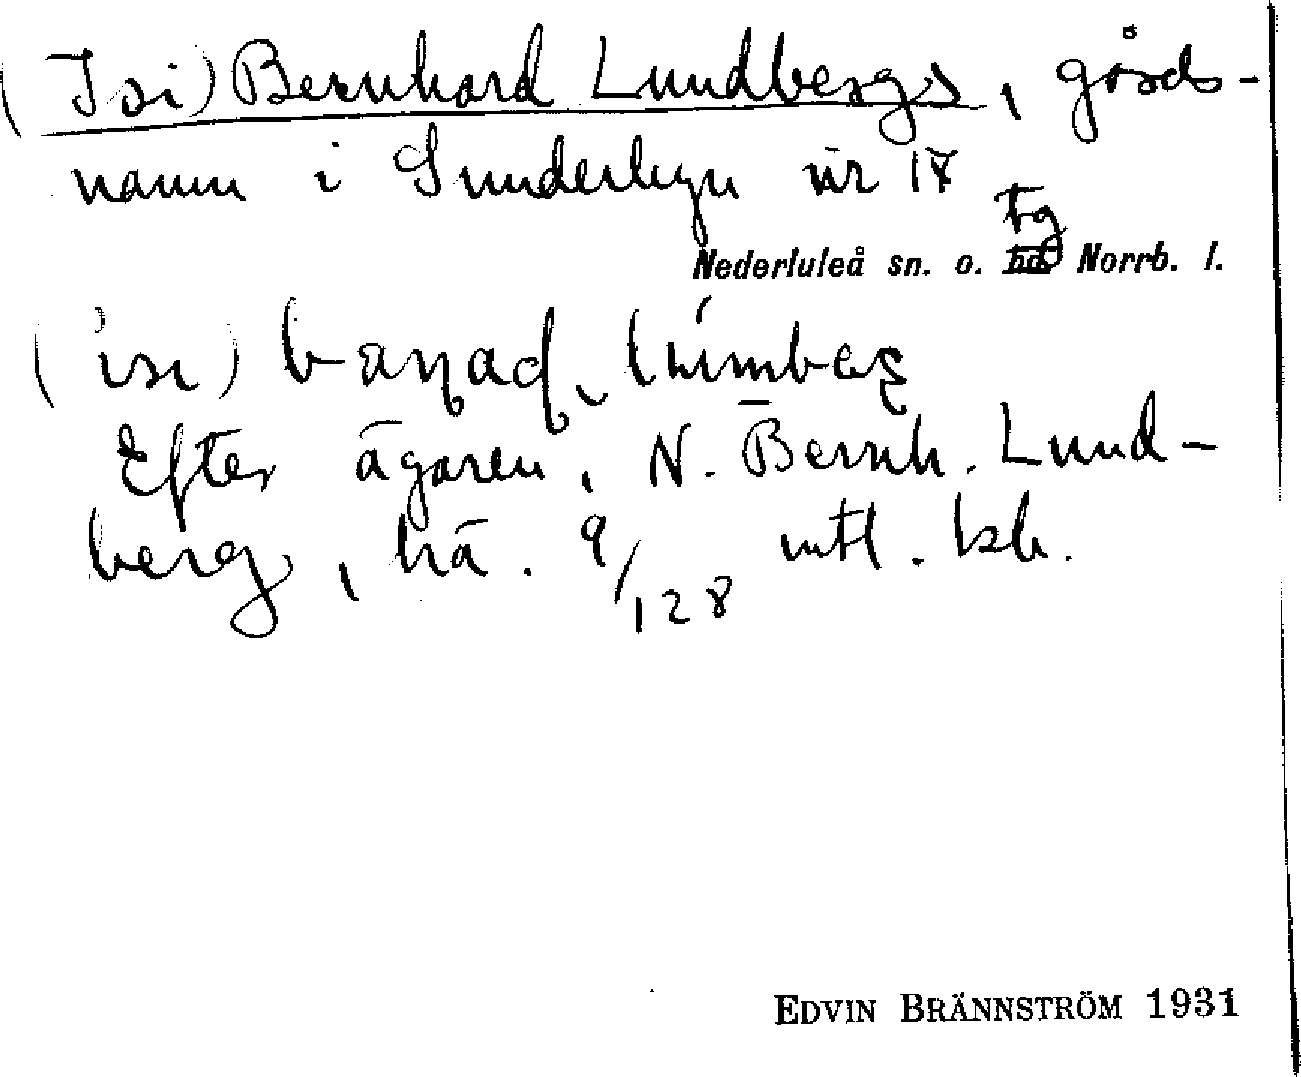 (Isi) Bernhard Lundbergs, gårds-
namn i Sunderbyn nr 17
tg
Nederluleå sn. o. hd. Norrb. l.
Efter ägaren, N. Bernh. Lund-
berg, hä. 9/128 mtl. kh.
EDVIN BRÄNNSTRÖM 1931